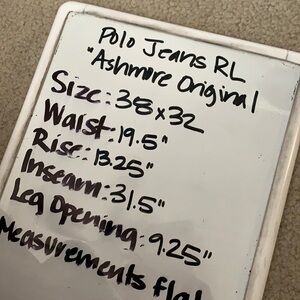 Polo Jeans RL
"Ashmore Original
Size: 38x32
Waist: 19.5"
Rise: 13.25"
Inseam: 31.5"
Leg Opening: 9.25"
Measurements flat